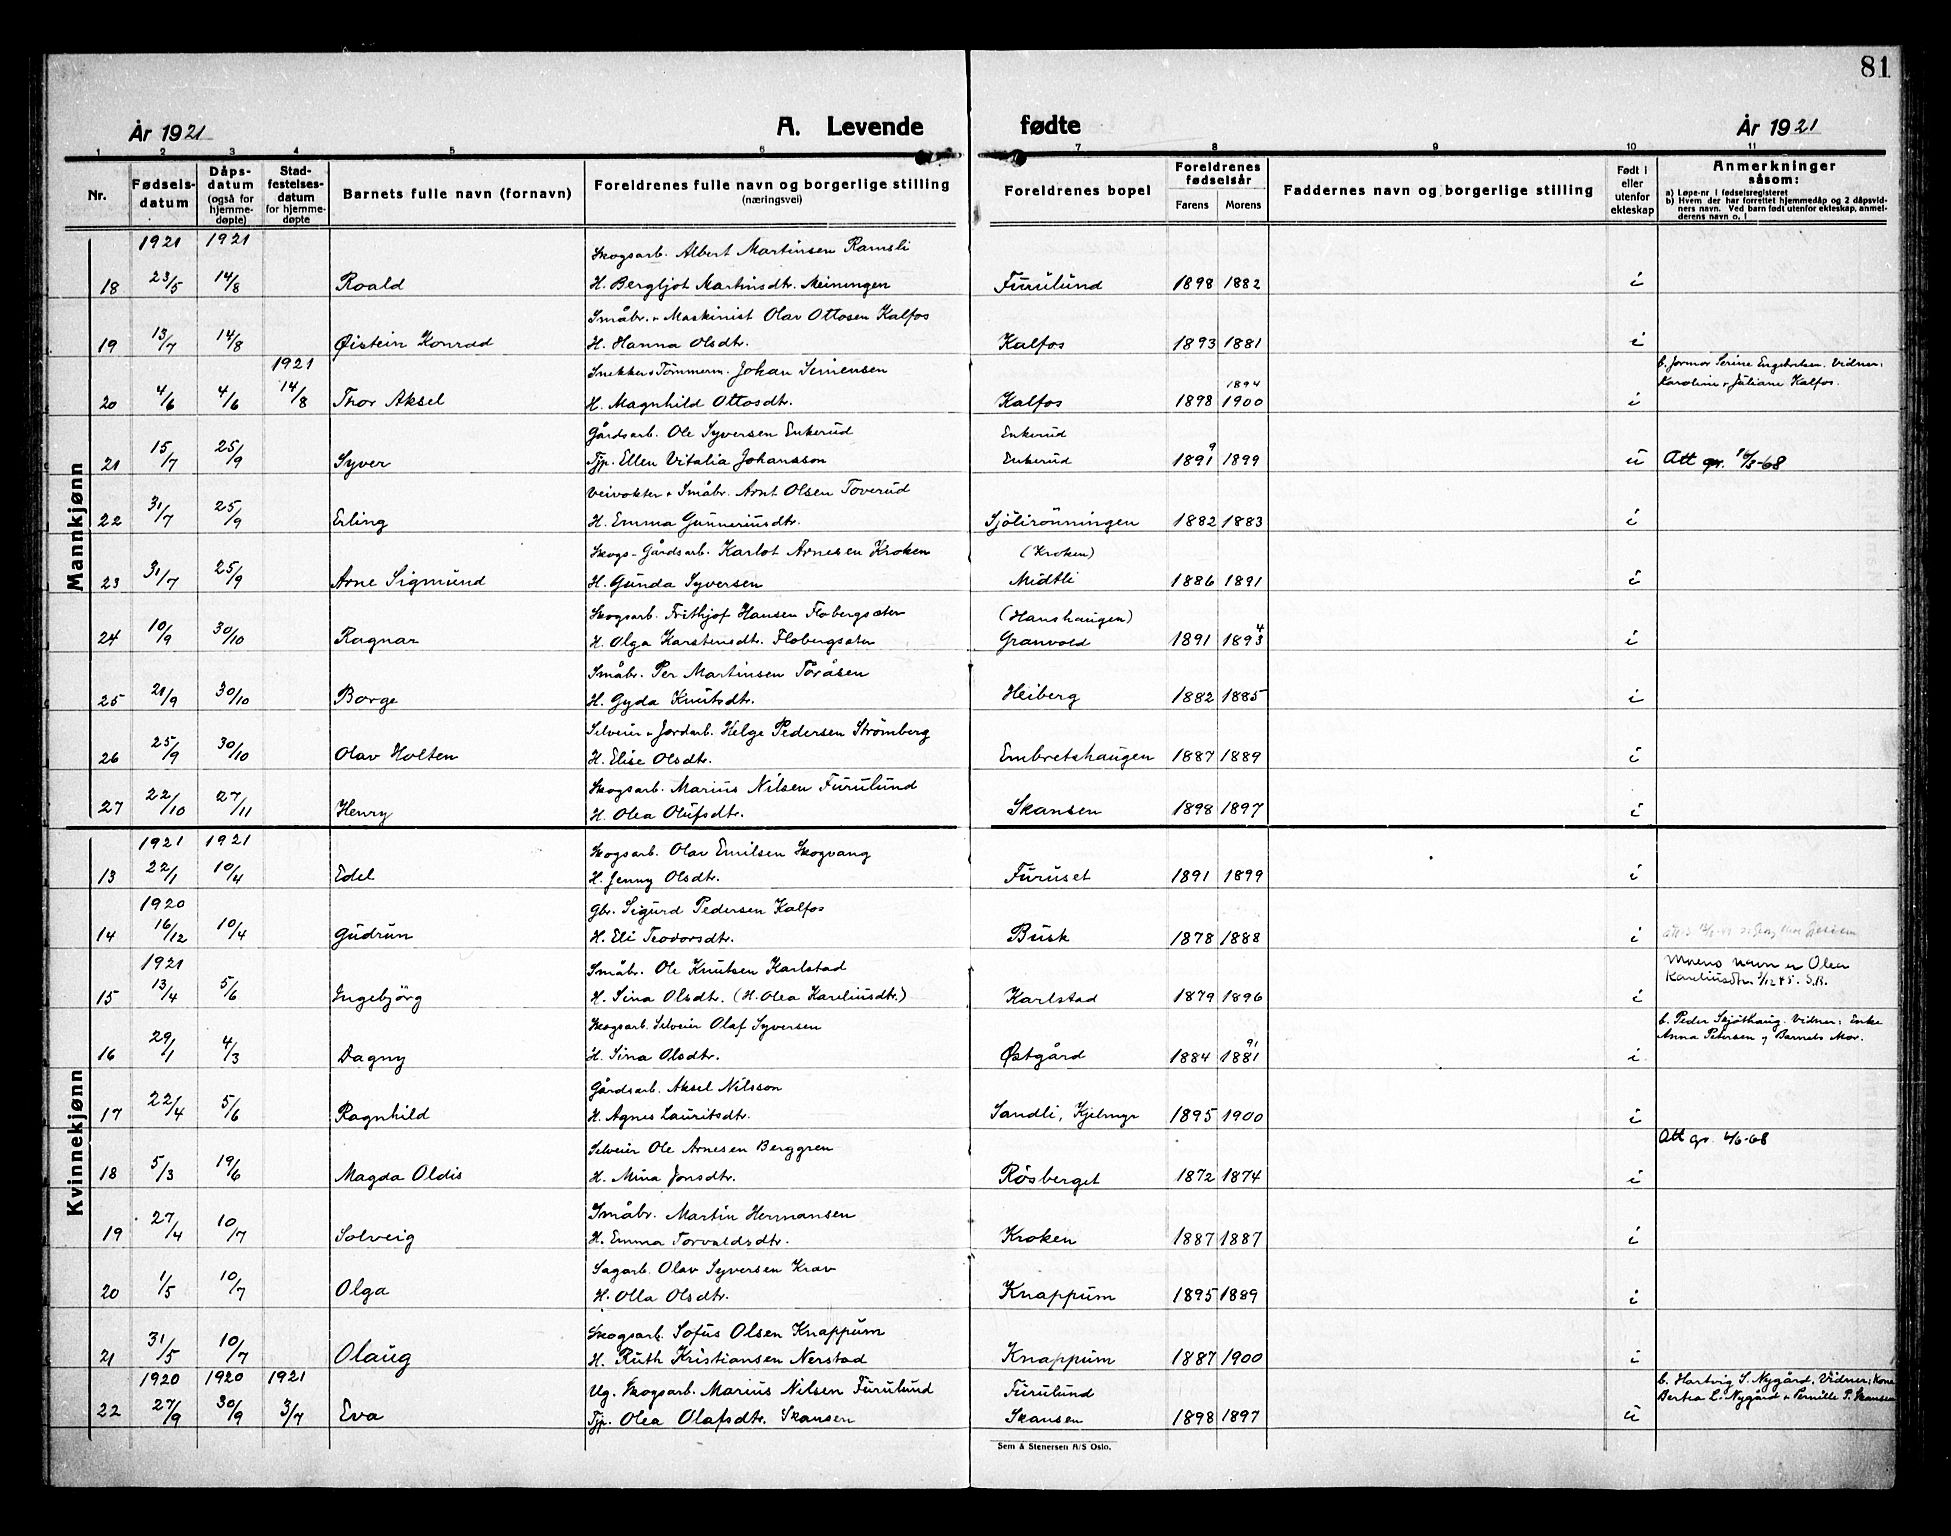 81
År 1921 A. Levende fødte År 1921
1 2 3 4 5 6 7 8 9 10 11
Nr. Fødselsdatum Dåpsdatum (også for hjemmedøpte) Stadfestelsesdatum for hjemmedøpte Barnets fulle navn (fornavn) Foreldrenes fulle navn og borgerlige stilling (næringsvei) Foreldrenes bopel Foreldrenes fødselsår Farens Morens Faddernes navn og borgerlige stilling Født i eller utenfor ekteskap Anmerkninger såsom:
a) Løpe-nr. i fødselsregisteret
b) Hvem der har forrettet hjemmedåp og 2 dåpsvidners navn. Ved barn født utenfor ekteskap, anmelderens navn o. l
Mannkjønn
1921 1921 Skogsarb. Albert Martinsen Ramsli
18 23/5 14/8 Roald H. Bergljot Martinsdtr. Meiningen Furulund 1898 1882 i
Småbr. + Maskinist Olav Ottosen Kalfos
19 13/7 14/8 Øistein Konrad H. Hanna Olsdtr. Kalfos 1893 1881 i
1921 Snekker + Tømmerm. Johan Simensen 1894 b. Jormor Serine Engebretsen. Vidner:
20 4/6 4/6 14/8 Thor Aksel H. Magnhild Ottosdtr. Kalfos 1898 1900 i Karoline + Juliane Kalfos.
Gårdsarb. Ole Syversen Enkerud Enkerud 9
21 15/7 25/9 Syver Tjp. Ellen Vitalia Johansson Enkerud 1891 1899 u Att gr. 16/3-68
Veivokter + Småbr. Arnt Olsen Toverud
22 31/7 25/9 Erling H. Emma Gunneriusdtr. Sjölirönningen 1882 1883 i
Skogs-Gårdsarb. Karlot Arnesen Kroken (Kroken)
23 31/7 25/9 Arne Sigmund H. Gunda Syversen Midtli 1886 1891 i
Skogsarb. Frithjof Hansen Flobergsæter (Hanshaugen) 4
24 10/9 30/10 Ragnar H. Olga Karstensdtr. Flobergsæter Granvold 1891 1893 i
Småbr. Per Martinsen Toråsen
25 21/9 30/10 Borge H. Gyda Knutsdtr. Heiberg 1882 1885 i
Selveier + Jordarb. Helge Pedersen Strömberg
26 25/9 30/10 Olav Holten H. Elise Olsdtr. Embretshaugen 1887 1889 i
Skogsarb. Marius Nilsen Furulund
27 22/10 27/11 Henry H. Olea Olufsdtr. Skansen 1898 1897 i
Kvinnekjønn
1921 1921 Skogsarb. Olav Emilsen Skogvang
13 22/1 10/4 Edel H. Jenny Olsdtr. Furuset 1891 1899 i
1920 Gbr. Sigurd Pedersen Kalfos
14 16/12 10/4 Gudrun H. Eli Teodorsdtr. Busk 1878 1888 i
1921 Småbr. Ole Knutsen Karlstad Morens navn er Olea
15 13/4 5/6 Ingebjörg H. Sina Olsdtr. (H. Olea Kareliusdtr.) Karlstad 1879 1896 i Kareliusdtr. 3/12 45. S.R.
Skogsarb. Selveier Olaf Syversen 91 b. Peder Skjøthaug. Vidner: Enke
16 29/1 4/3 Dagny H. Sina Olsdtr. Østgård 1884 1881 i Anna Petersen og Barnets Mor.
Gårdsarb. Aksel Nilsson
17 22/4 5/6 Ragnhild H. Agnes Lauritsdtr. Sandli, Kjelmyr 1895 1900 i
Selveier Ole Arnesen Berggren Att gr. 4/6-68
18 5/3 19/6 Magda Oldis H. Mina Jonsdtr. Røsberget 1872 1874 i
Småbr. Martin Hermansen
19 27/4 10/7 Solveig H. Emma Torvaldsdtr. Kroken 1887 1887 i
Sagarb. Olav Syversen Krav
20 1/5 10/7 Olga H. Olla Olsdtr. Knappum 1895 1889 i
Skogsarb. Sofus Olsen Knappum
21 31/5 10/7 Olaug H. Ruth Kristiansen Nerstad Knappum 1887 1900 i
1920 1920 1921 Ug. Skogsarb. Marius Nilsen Furulund Furulund b. Hartvig S. Nygård. Vidner: Kone
22 27/9 30/9 3/7 Eva Tjp. Olea Olafsdtr. Skansen Skansen 1898 1897 u Bertea L. Nygård + Pernille P. Skansen
Sem & Stenersen A/S Oslo.